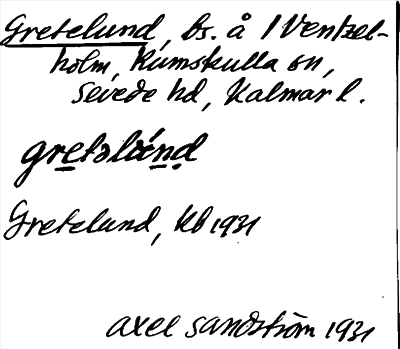 Gretelund, bs. å 1 Ventzel-
holm, Rumskulla sn,
Sevede hd, Kalmar l.
gretəlɯ́nd
Gretelund, Kb 1931
Axel Sandström 1931